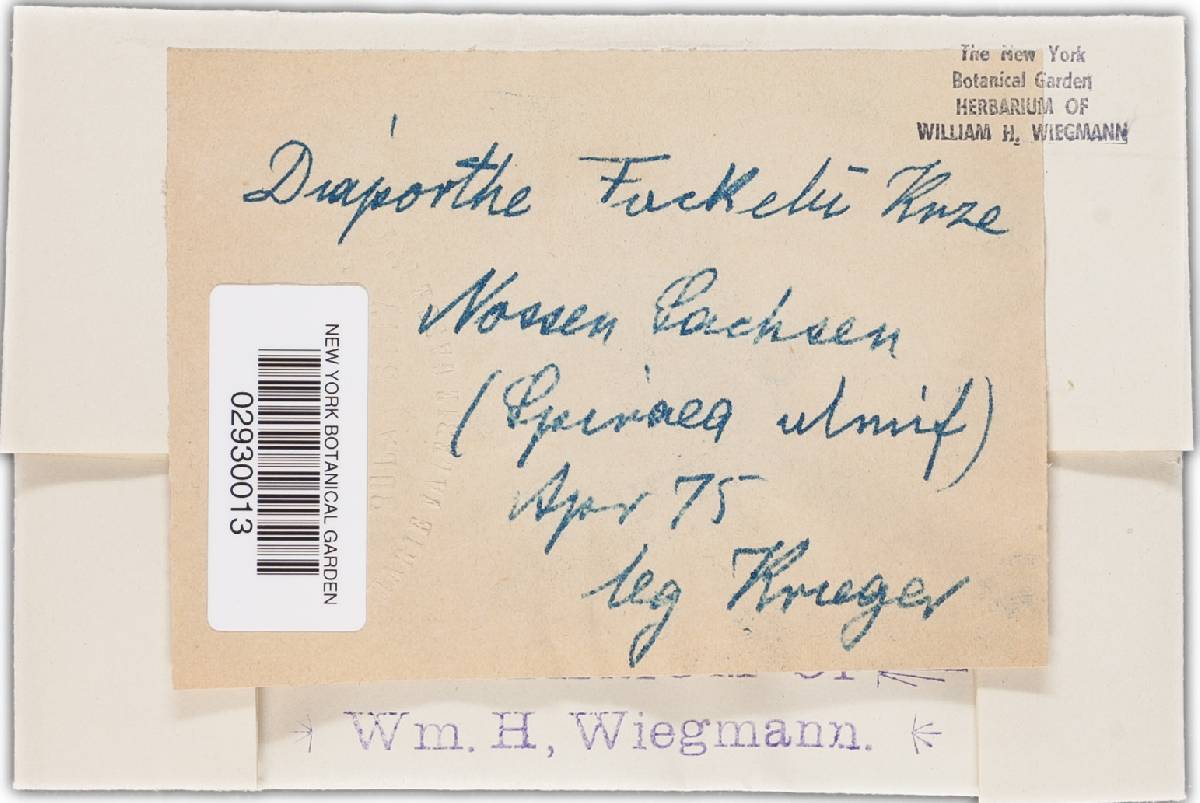 The New York
Botanical Garden
HERBARIUM OF
WILLIAM H. WIEGMANN
Diaporthe Fuckelii Knze
Nossen Sachsen
(Spiraea ulmif)
Apr 75
leg Krieger
NEW YORK BOTANICAL GARDEN
02930013
Wm. H, Wiegmann.